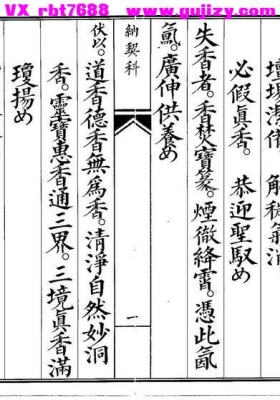 VX rbt7688 www.gujizy.com
必假真香。恭迎聖馭め
失香者。香焚寶篆。煙徹絳霄。憑此氤
氳。廣伸供養め
納契科
一
伏以。道香德香無為香。清淨自然妙洞
香。靈寶惠香通三界。三境真香滿
瓊揚め